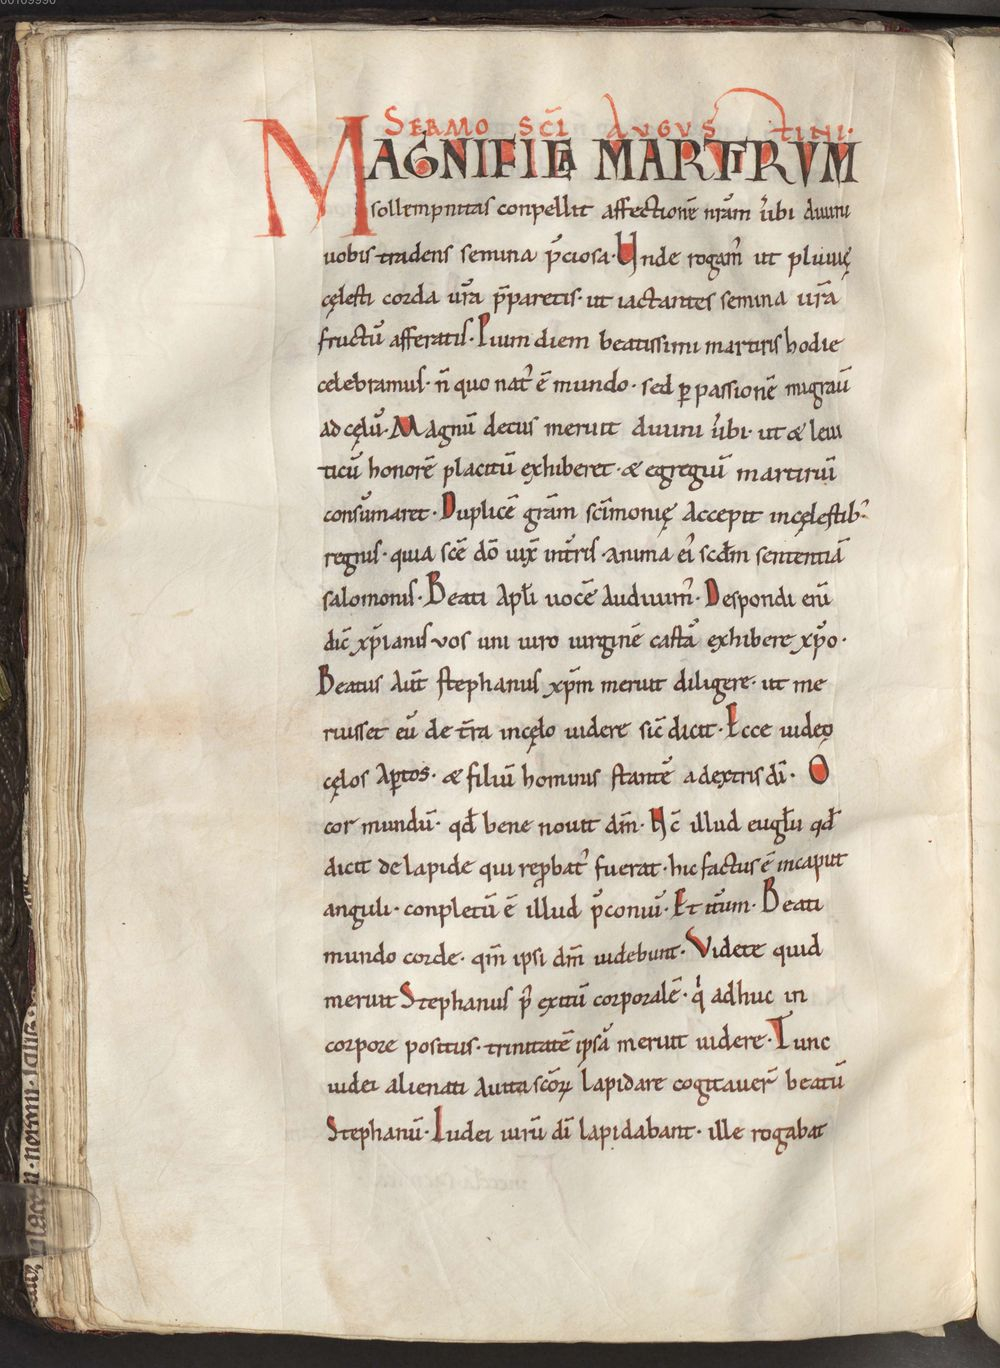 00109990
SERMO SC̄I AUGUSTINI·
MAGNIFICA MARTIRVM
sollempnitas conpellit affectionē nr̄am v̓bi diuini
uobis tradens semina p̄ciosa· Unde rogam̄ ut pluuię
cęlesti corda ur̄a p̄paretis· ut iactantes semina ur̄a
fructū afferatis· Pium diem beatissimi martiris hodie
celebramus· n̄ quo nat᾽ ē mundo· sed ꝑ passionē migrau̅
ad cęlū· Magnū decus meruit diuini v̓bi· ut & leui
ticū honorē placitū exhiberet· & egregiū martiriū
consūmaret· Duplicē gr̄am sc̄imonię accepit in cęlestib᾽
regnis· quia sc̄e dō uix̄ in t̄ris· anima ei᾽ scd̄m sententiā
salomonis· Beati apl̄i uocē audiuim᾽· Despondi enī
dic̄ xp̄ianis vos uni uiro uirginē castā exhibere xp̄o·
Beatus aut̄ stephanus xp̄m meruit diligere· ut me
ruisset eū de t̄ra in cęlo uidere sic̄ dicit· Ecce uideo
cęlos aptos· & filiū hominis stantē a dextris dī· O
cor mundū· qd̄ bene nouit dm̄· Hc̄ illud eugl̄ii qd̄
dicit de lapide qui reꝓbat᾽ fuerat· hic factus ē in caput
anguli· conpletū ē illud p̄coniū· Et it̄um· Beati
mundo corde· qm̄ ipsi dm̄ uidebunt· Videte quid
meruit Stephanus p᾽ exitū corporalē· q̓ adhuc in
corpore positus· trinitatē ipsā meruit uidere· Tunc
iudei alienati a uita sc̄oꝝ lapidare cogitauer̄ beatū
Stephanū· Iudei uirū dī lapidabant· ille rogabat